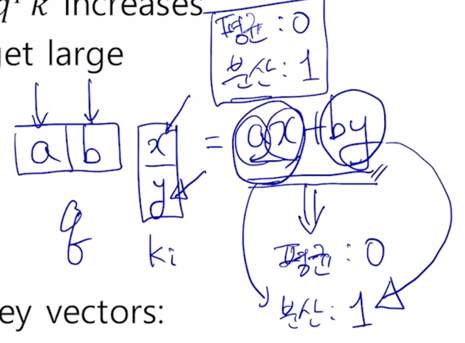 q^T k increases
평균 : 0
get large
분산 : 1
a b x = ax + by
y
q ki
평균 : 0
분산 : 1
ey vectors: